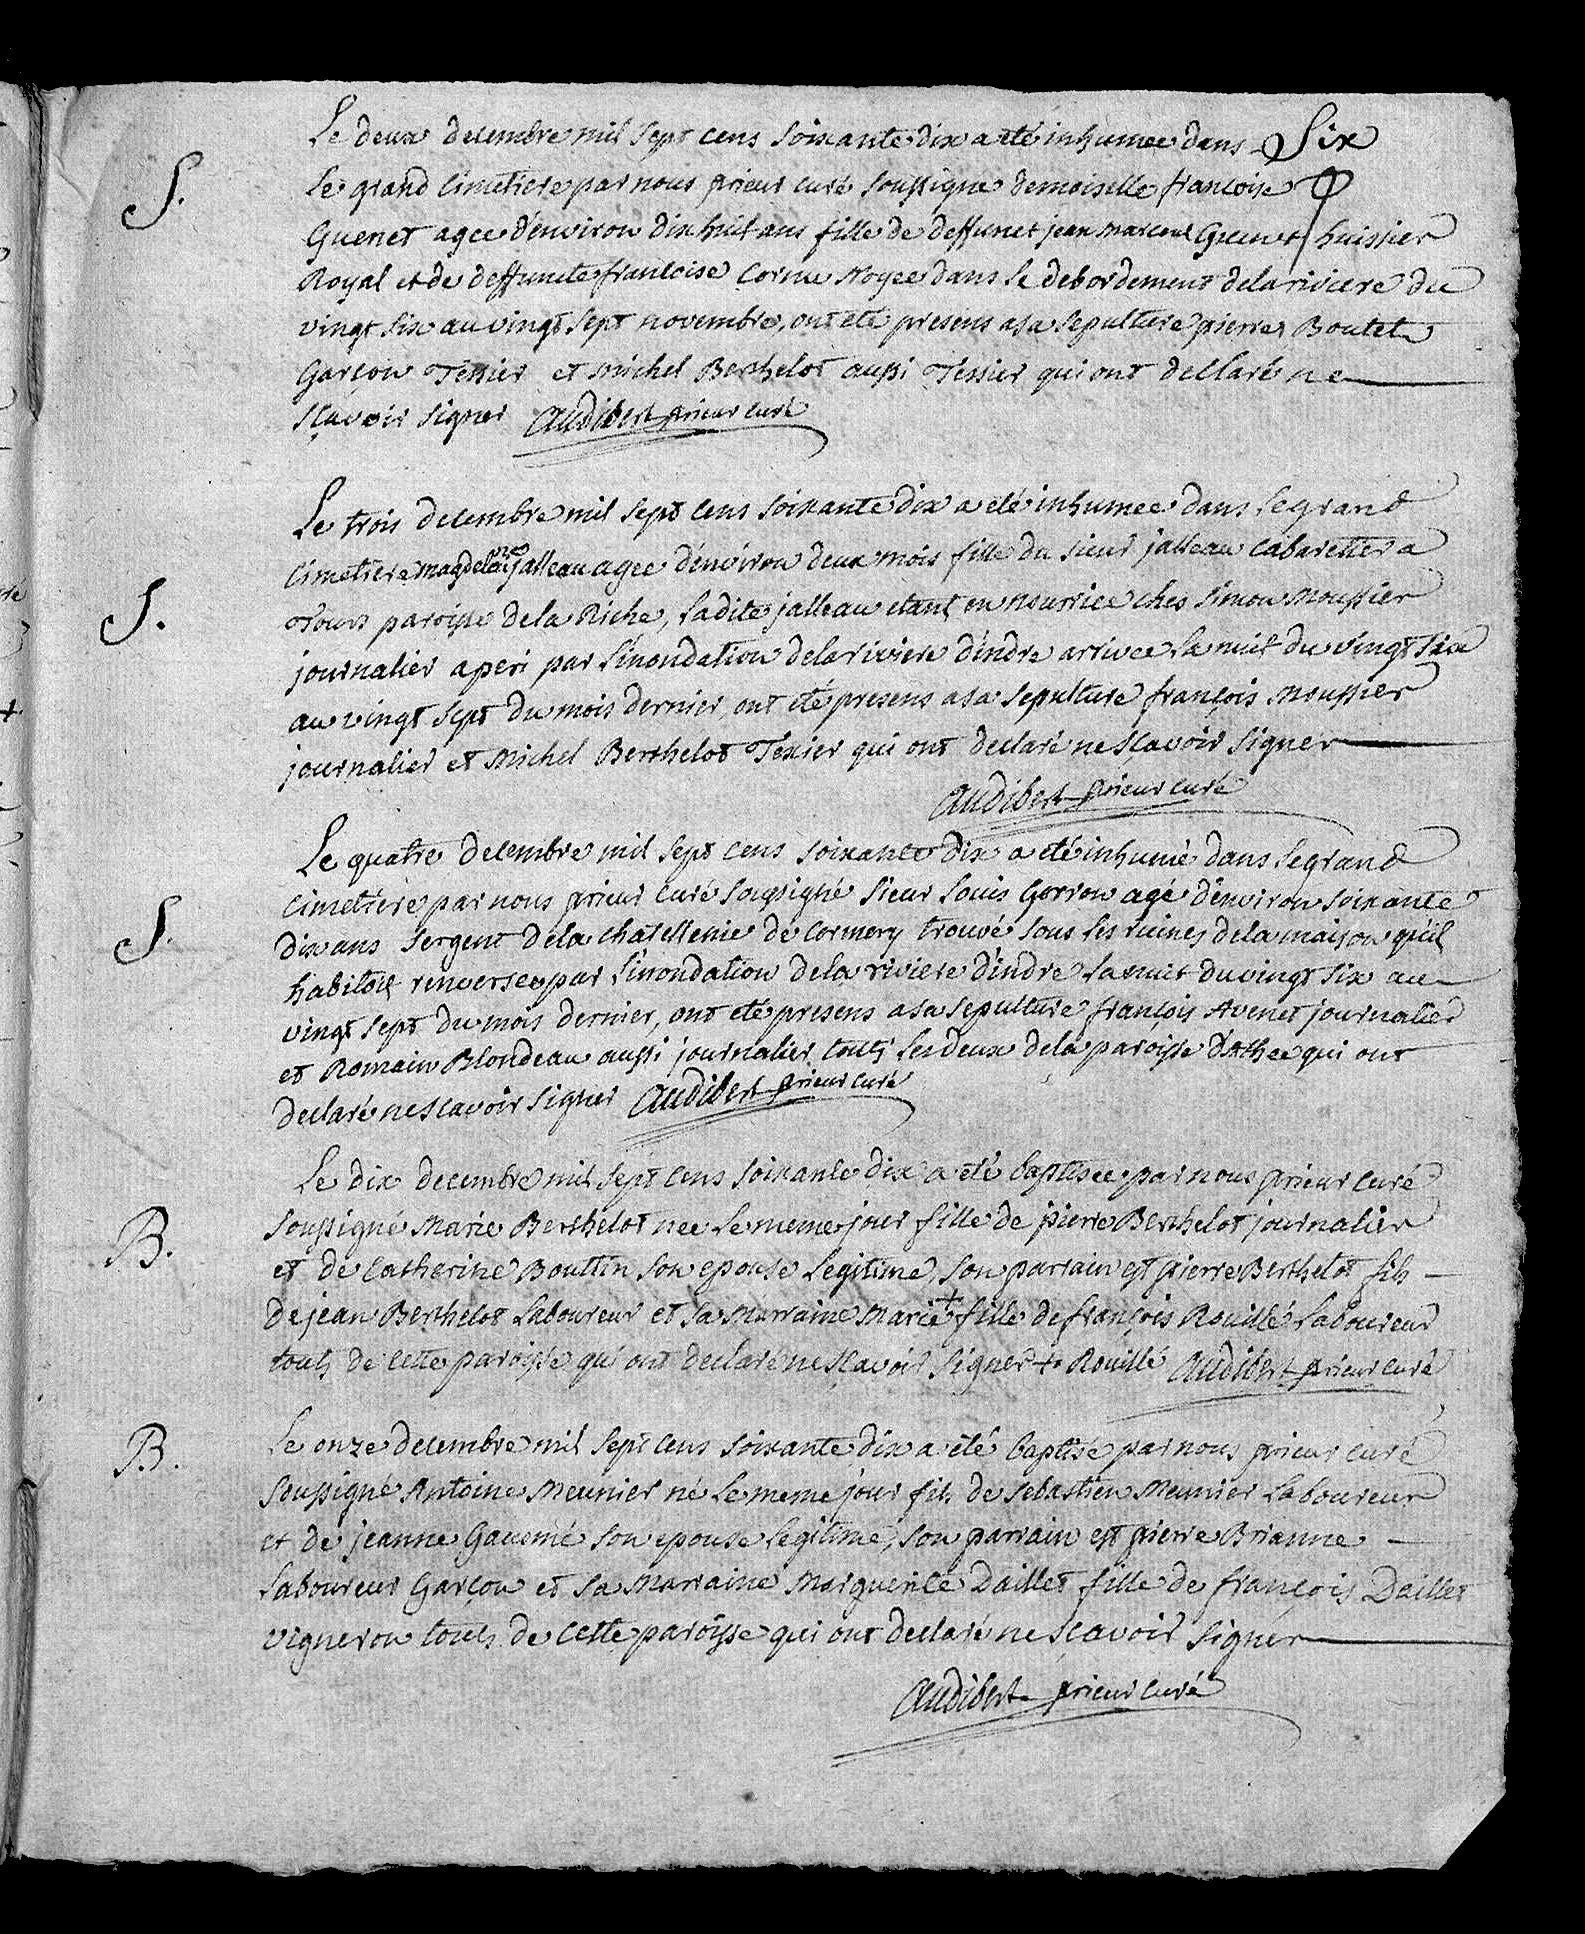 Le deux decembre mil sept cens soixante dix a eté inhumee dans Six
S. le grand Cimetiere par nous prieur curé soussigné demoiselle francoise
Guenet agee d'environ dix huit ans fille de deffunct jean marcoul Guenet huissier
Royal et de deffuncte francoise Cornu Noyee dans le debordement de la riviere du
vingt six au vingt sept novembre, ont eté presens a sa sepulture pierre Boutet
Garcon Tessier et michel Berthelot aussi Tessier qui ont declaré ne
sçavoir signer Audibert prieur curé
Le trois decembre mil sept cens soixante dix a eté inhumee dans le grand
Cimetiere magdelaine jalleau agee d'environ deux mois fille du sieur jalleau Cabaretier a
S. Tours paroisse de la Riche, ladite jalleau etant en nourrice ches simon moussier
journalier a peri par l'inondation de la riviere d'indre arrivee la nuit du vingt six
au vingt sept du mois dernier, ont eté presens a sa sepulture françois moussier
journalier et Michel Berthelot Texier qui ont declaré ne sçavoir signer
Audibert prieur curé
Le quatre decembre mil sept cens soixante dix a eté inhumé dans le grand
Cimetiere par nous prieur curé soussigné sieur Louis Gorron agé d'environ soixante
S. dix ans sergent de la chatellenie de Cormery trouvé sous les ruines de la maison qu'il
habitoit renversee par l'inondation de la riviere d'indre la nuit du vingt six au
vingt sept du mois dernier, ont eté presens a sa sepulture françois Avenet journalier
et Romain Blondeau aussi journalier touts les deux de la paroisse d'Athee qui ont
declaré ne scavoir signer Audibert prieur curé
Le dix decembre mil sept cens soixante dix a eté baptisee par nous prieur curé
soussigné Marie Berthelot nee le meme jour fille de pierre Berthelot journalier
B. et de Catherine Bouttin son epouse legitime, son parrain est pierre Berthelot fils
de jean Berthelot Laboureur et sa Marraine Marie + fille de françois Rouillé laboureur
touts de cette paroisse qui ont declaré ne sçavoir signer + Rouillé Audibert prieur curé
B. Le onze decembre mil sept cens soixante dix a été baptisé par nous prieur curé
soussigné Antoine Meunier né le meme jour fils de sebastien Meunier Laboureur
et de jeanne Gauemé son epouse legitime, son parrain est pierre Brianne
Laboureur Garçon et sa Marraine Marguerite Daillet fille de françois Daillet
vigneron touts de cette paroisse qui ont declaré ne sçavoir signer
Audibert prieur curé